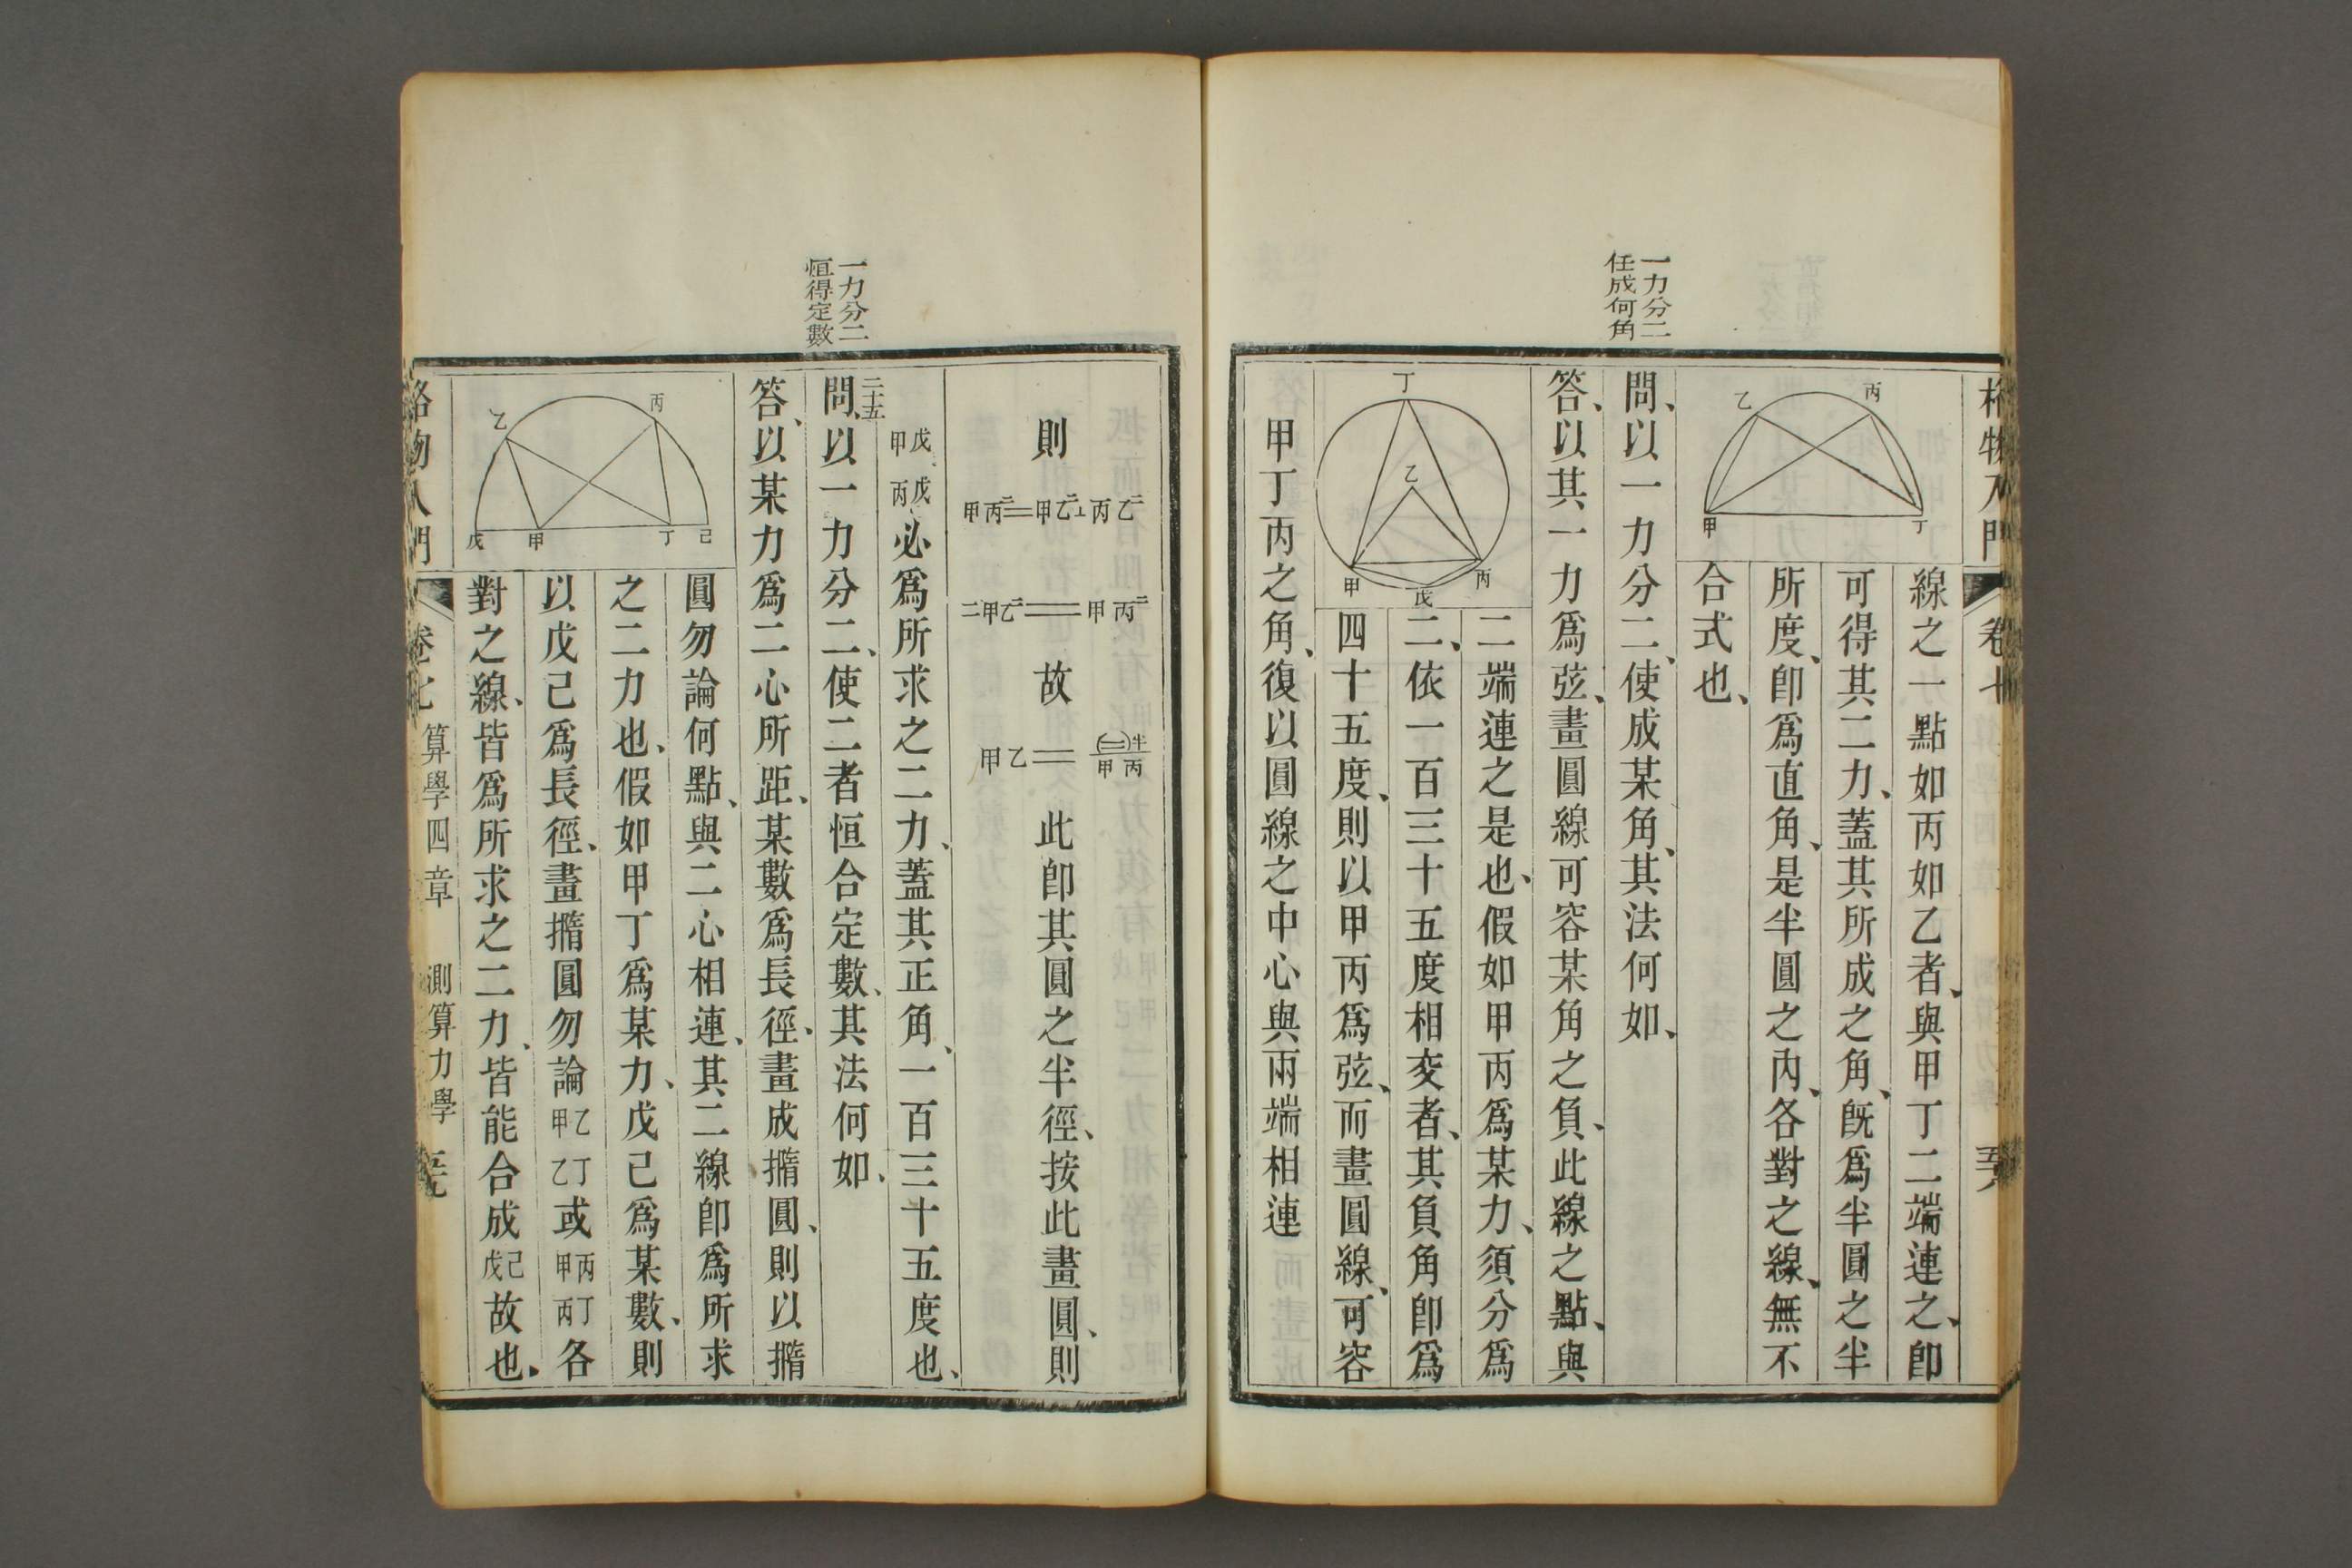 格物入門
卷七
五十八
丙
乙
丁
甲
線之一點如丙如乙者、與甲丁二端連之、卽
可得其二力、蓋其所成之角、旣爲半圓之半
所度、卽爲直角、是半圓之內、各對之線、無不
合式也、
一力分二
任成何角
問、以一力分二、使成某角、其法何如、
答、以其一力爲弦、畫圓線可容某角之負、此線之點、與
丁
乙
丙
甲
戊
二端連之是也、假如甲丙爲某力、須分爲
二、依一百三十五度相交者、其負角卽爲
四十五度、則以甲丙爲弦、而畫圓線、可容
甲丁丙之角、復以圓線之中心與兩端相連
則 甲丙二=甲乙二⊥丙乙二 二甲乙二=甲丙二 故 甲乙=甲丙(二)半 此卽其圓之半徑、按此畫圓、則
甲戊、丙戊、必爲所求之二力、蓋其正角、一百三十五度也、
一力分二
恒得定數
二十五
問、以一力分二、使二者恒合定數、其法何如、
答、以某力爲二心所距、某數爲長徑、畫成撱圓、則以撱
圓勿論何點、與二心相連、其二線卽爲所求
之二力也、假如甲丁爲某力、戊己爲某數、則
以戊己爲長徑、畫撱圓勿論甲乙乙丁或甲丙丙丁各
對之線、皆爲所求之二力、皆能合成戊己故也、
丙
乙
己
丁
甲
戊
格物入門
卷七
算學四章
測算力學
五十九